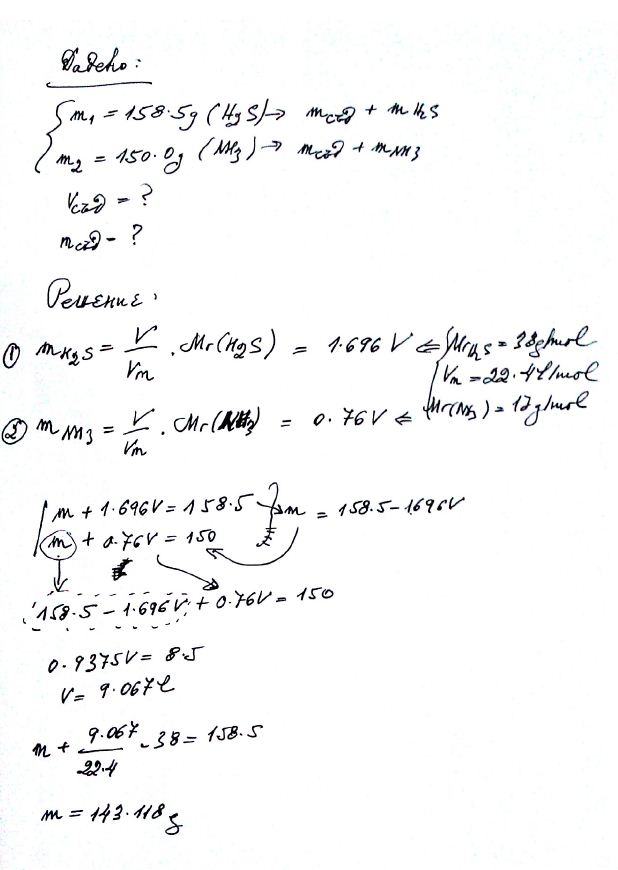 Дадено:
m₁ = 158.5g (H₂S) → mсъд + mH₂S
m₂ = 150.0g (NH₃) → mсъд + mNH₃
Vсъд = ?
mсъд - ?
Решение:
① mH₂S = V/Vm . Mr(H₂S) = 1.696 V ⇐ { MrH₂S = 38g/mol
Vm = 22.4 l/mol
② mNH₃ = V/Vm . Mr(NH₃) = 0.76V ⇐ Mr(NH₃) = 17g/mol
m + 1.696V = 158.5 } → m = 158.5 - 1.696V
m + 0.76V = 150
158.5 - 1.696V + 0.76V = 150
0.9375V = 8.5
V = 9.067 l
m + 9.067/22.4 . 38 = 158.5
m = 143.118 g